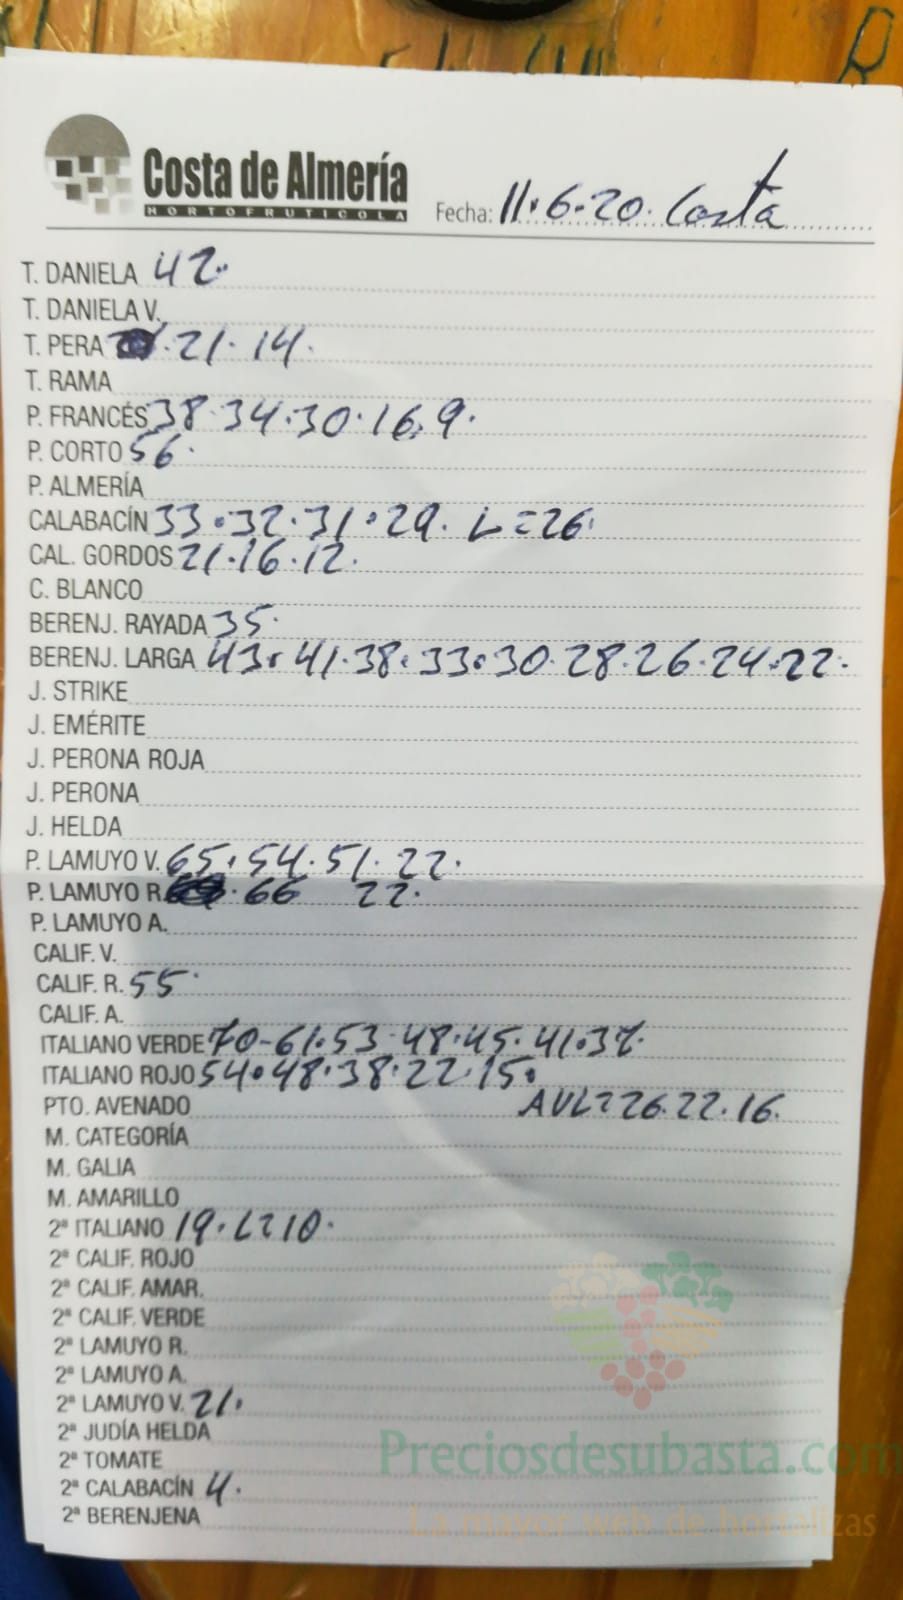 Costa de Almería
HORTOFRUTICOLA
Fecha: 11.6.20. Costa
T. DANIELA 42.
T. DANIELA V.
T. PERA 21. 14.
T. RAMA
P. FRANCÉS 38. 34. 30. 16. 9.
P. CORTO 56.
P. ALMERÍA
CALABACÍN 33. 32. 31. 29. L=26.
CAL. GORDOS 21. 16. 12.
C. BLANCO
BERENJ. RAYADA 35.
BERENJ. LARGA 43. 41. 38. 33. 30. 28. 26. 24. 22.
J. STRIKE
J. EMÉRITE
J. PERONA ROJA
J. PERONA
J. HELDA
P. LAMUYO V. 65. 54. 51. 22.
P. LAMUYO R. 66 22.
P. LAMUYO A.
CALIF. V.
CALIF. R. 55.
CALIF. A.
ITALIANO VERDE 70-61. 53. 48. 45. 41.
ITALIANO ROJO 54. 48. 38. 22. 15.
PTO. AVENADO AVL=26. 22. 16.
M. CATEGORÍA
M. GALIA
M. AMARILLO
2ª ITALIANO 19. L=10.
2ª CALIF. ROJO
2ª CALIF. AMAR.
2ª CALIF. VERDE
2ª LAMUYO R.
2ª LAMUYO A.
2ª LAMUYO V. 21.
2ª JUDÍA HELDA
2ª TOMATE
2ª CALABACÍN 4.
2ª BERENJENA
Preciosdesubasta.com
La mayor web de hortalizas